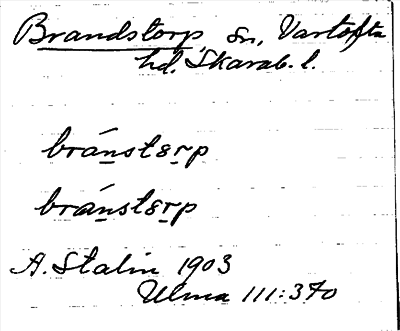 Brandstorp sn, Vartofta
hd. Skarab. l.
bránstɛrp
bránstɛrp
A. Stalin 1903
Ulma 111:370